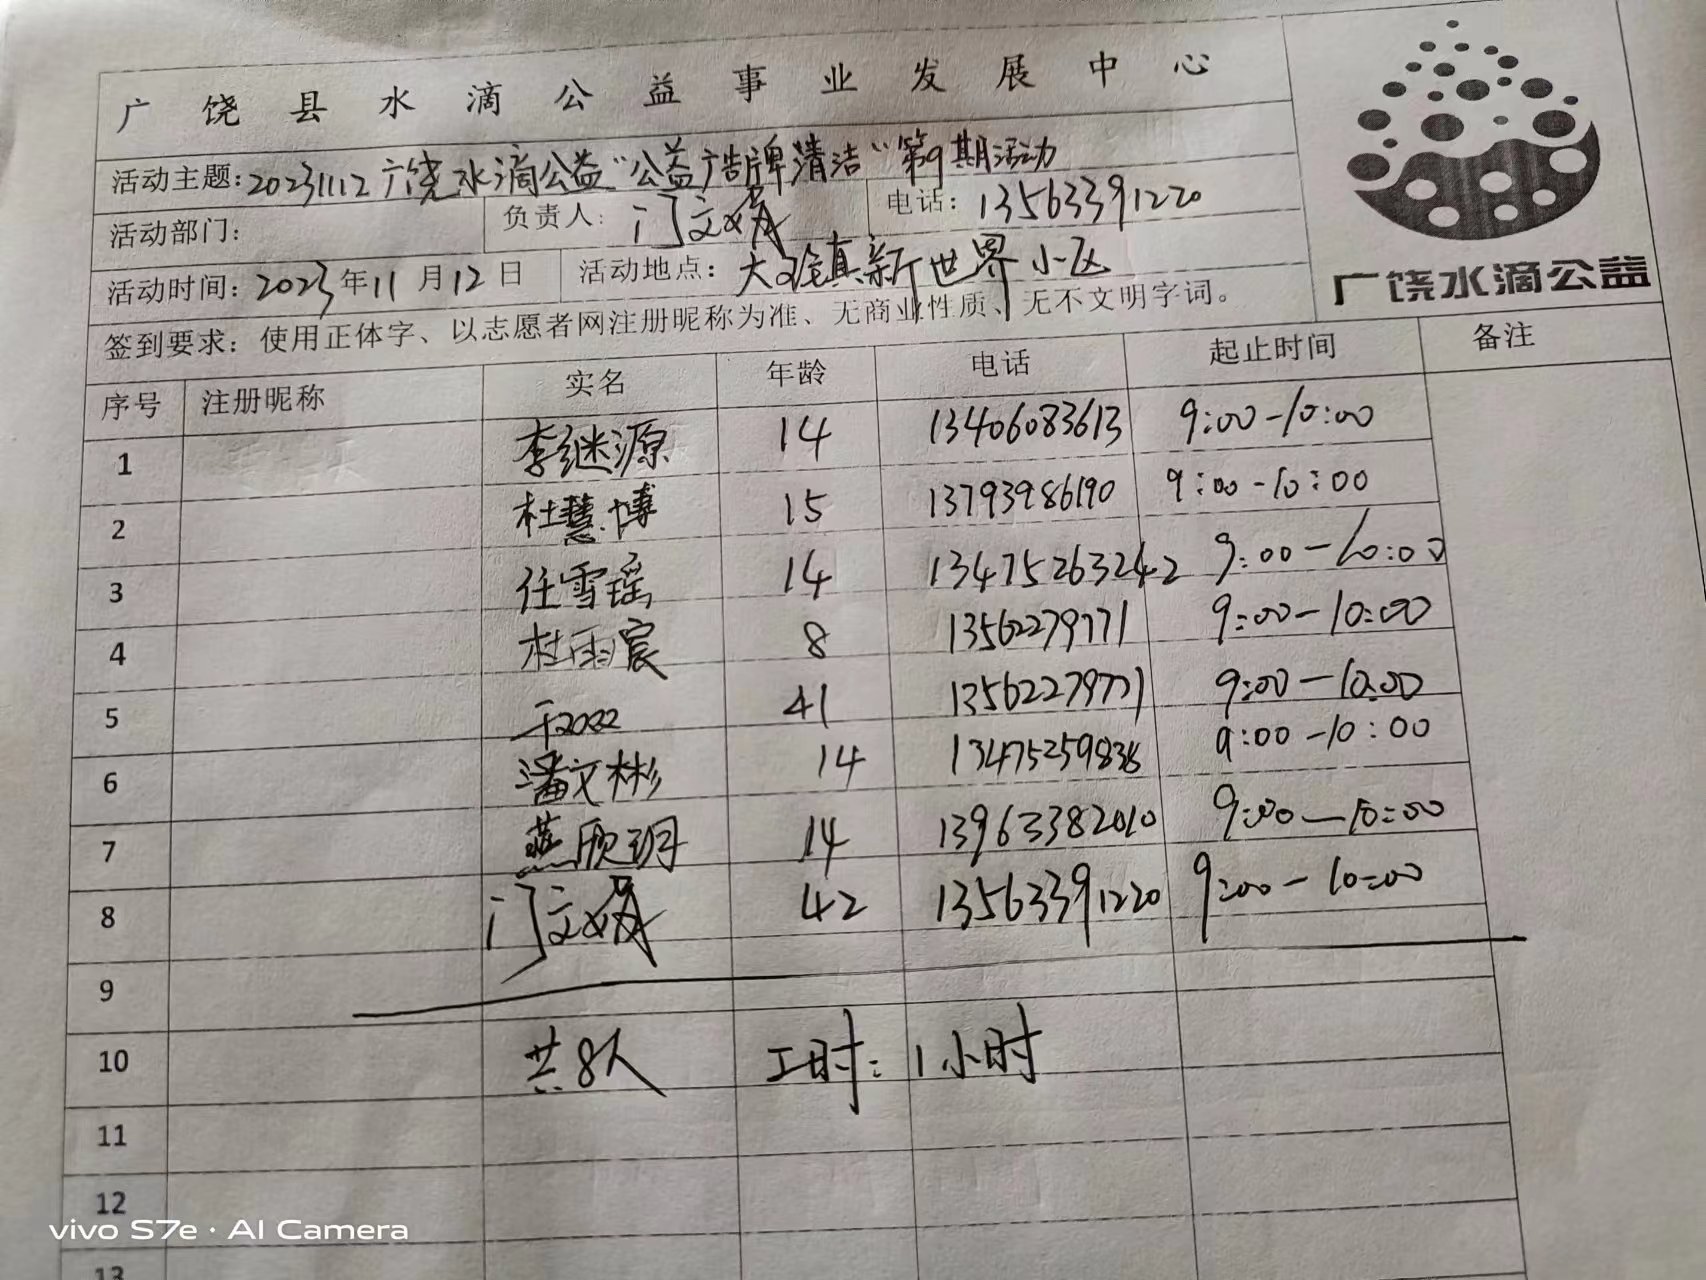 广饶县水滴公益事业发展中心
广饶水滴公益
活动主题：20231112广饶水滴公益“公益广告牌清洁”第9期活动
活动部门： 负责人： 门文 电话：13563391220
活动时间：2023年11月12日 活动地点：大王镇新世界小区
签到要求：使用正体字、以志愿者网注册昵称为准、无商业性质、无不文明字词。
序号 注册昵称 实名 年龄 电话 起止时间 备注
1 李继源 14 13406083613 9:00-10:00
2 杜慧博 15 13793986190 9:00-10:00
3 任雪瑶 14 13475263242 9:00-10:00
4 杜雨宸 8 13562279771 9:00-10:00
5 41 13562279771 9:00-10:00
6 潘文彬 14 13475259838 9:00-10:00
7 燕欣玥 14 13963382010 9:00-10:00
8 门文 42 13563391220 9:00-10:00
9
10 共8人 工时：1小时
11
12
13
vivo S7e · AI Camera